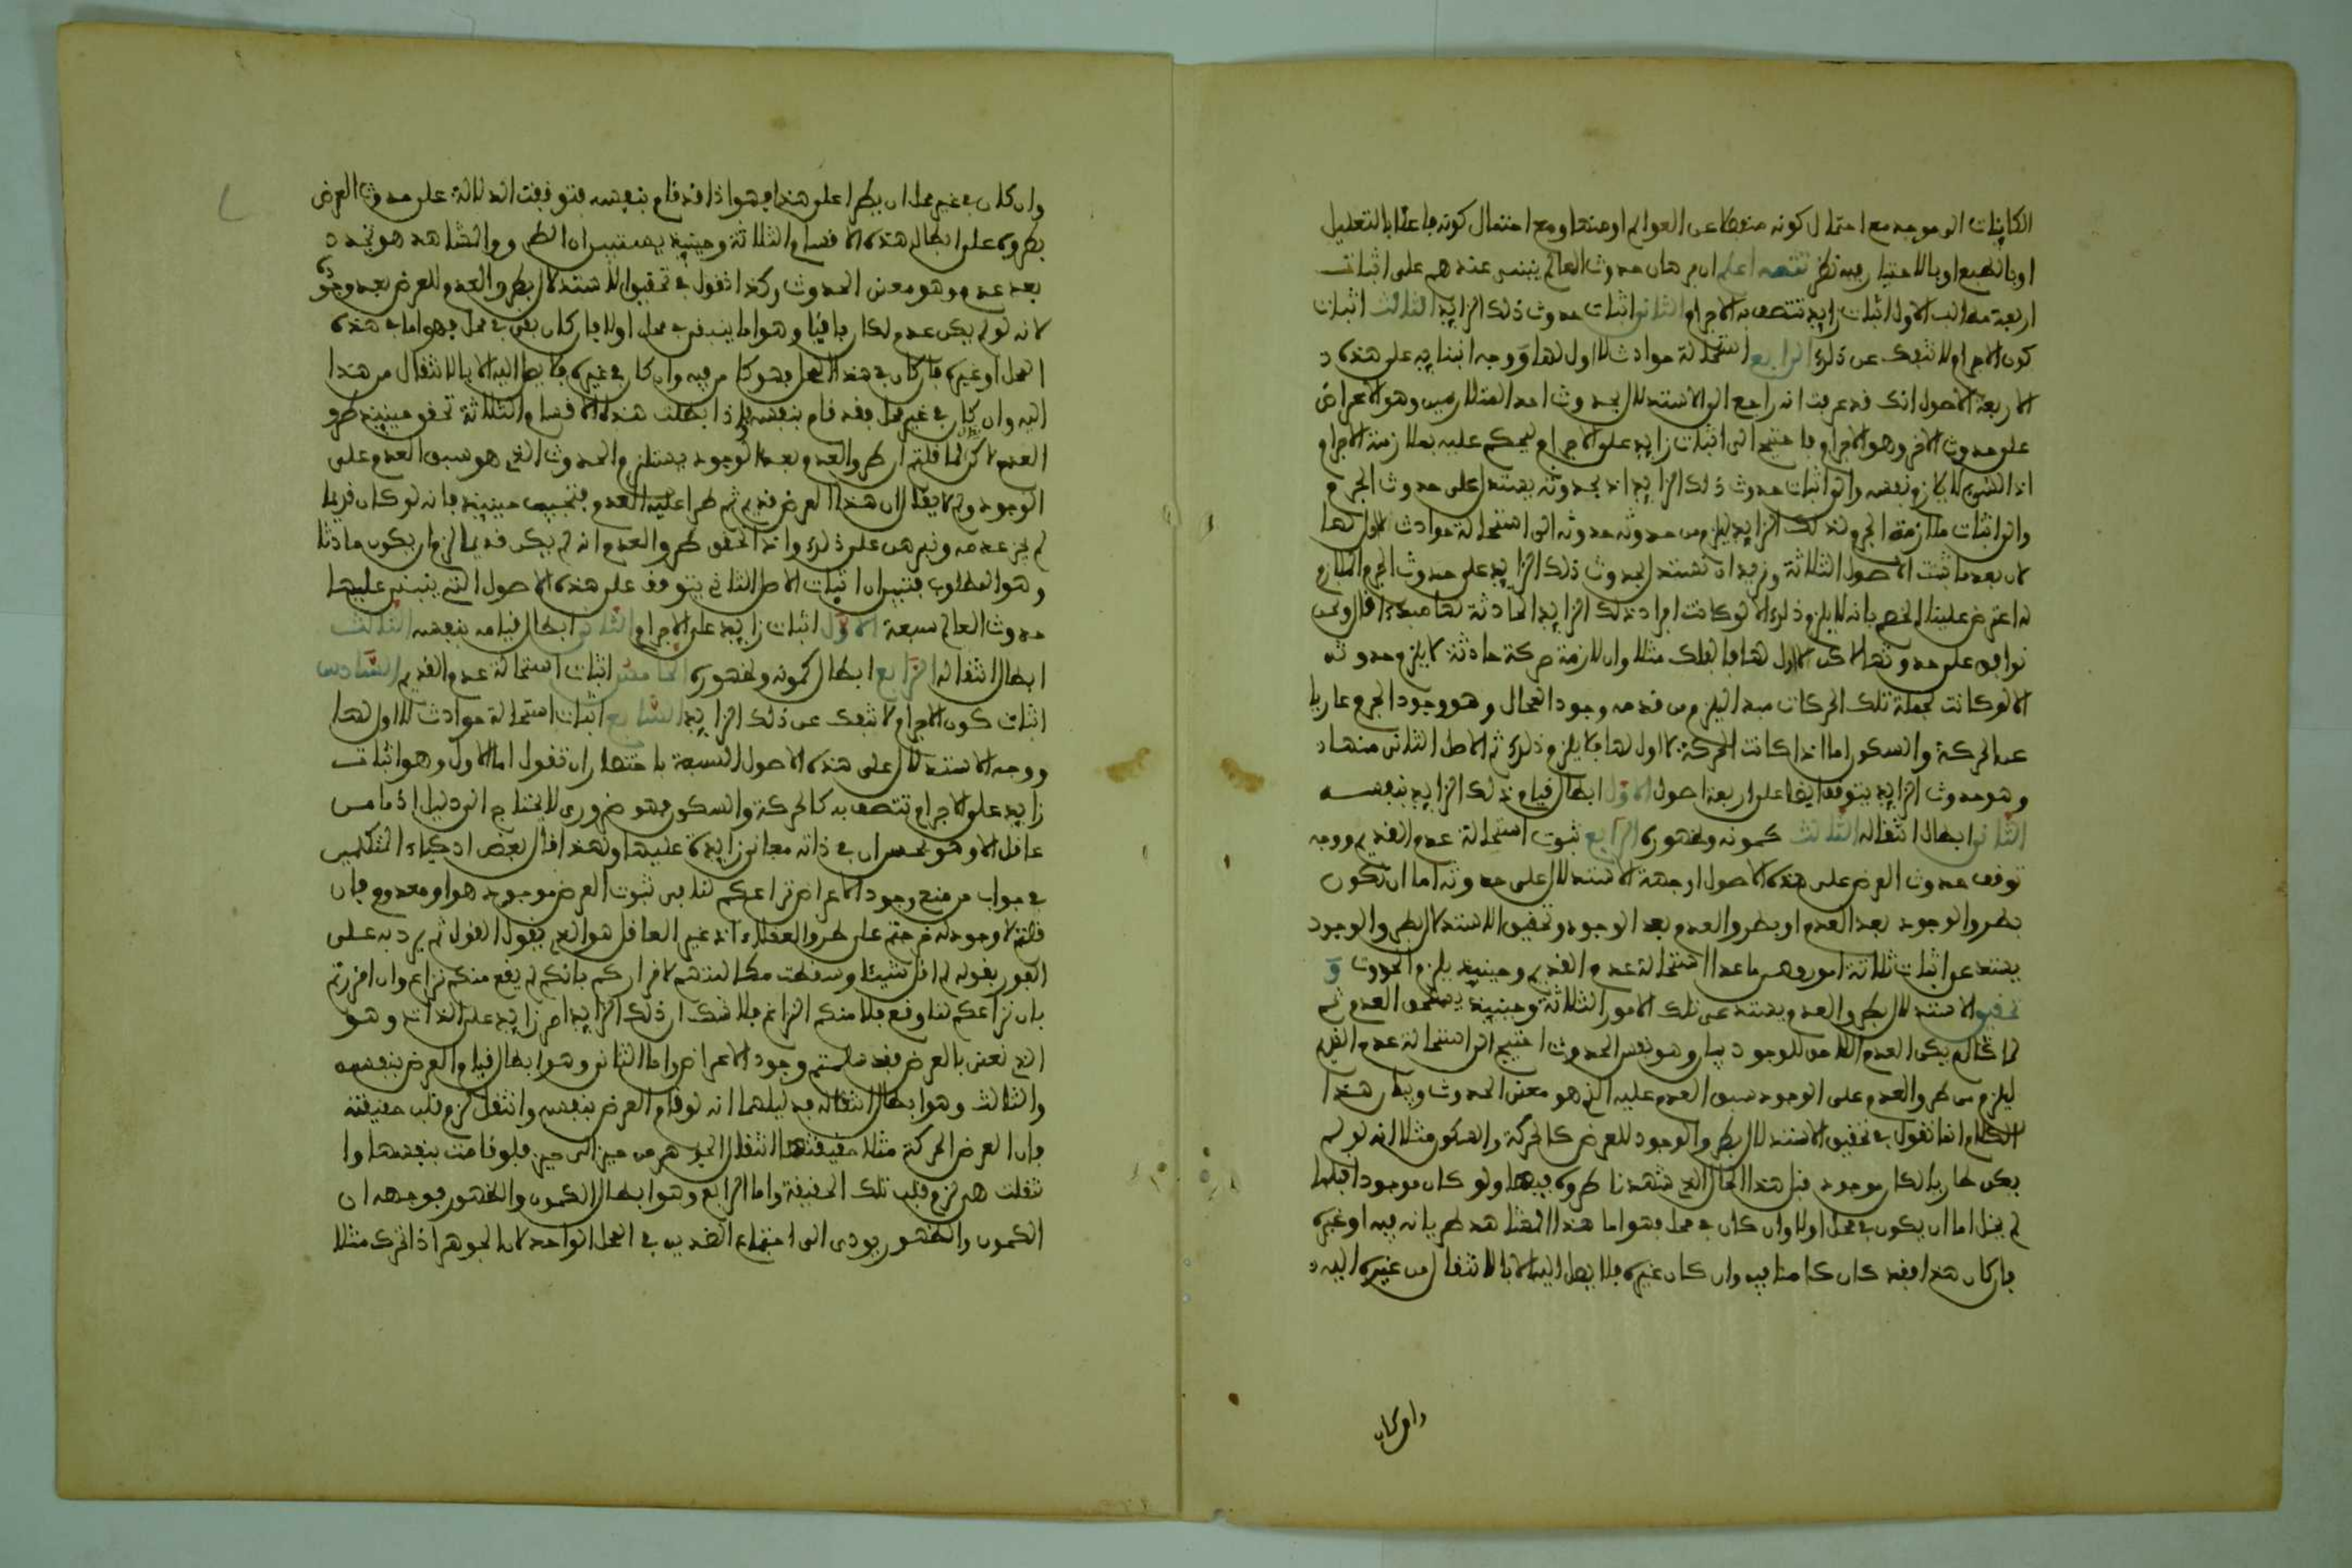 الكاينات الى موجد مع احتمال كونه منفصلا عن العوالم او متصلا ومع احتمال كونه فاعلا بالتعليل
او بالطبع او بالاختيار فيه نظر تتمة اعلم ان برهان حدوث العالم ينبنى عندهم على اثبات
اربعة مطالب الاول اثبات زايد تتصف به الاجرام الثانى اثبات حدوث ذلك الزايد الثالث اثبات
كون الاجرام لا تنفك عن ذلك الرابع استحالة حوادث لا اول لها ووجه انبنايه على هذه
الاربعة الاصول انك قد عرفت انه راجع الى الاستدلال بحدوث احد المتلازمين وهو الاعراض
على حدوث الاخر وهو الاجرام فاحتيج الى اثبات زايد على الاجرام ليحكم عليه بملازمة الاجرام
اذ الشىء لا يلازم نفسه والى اثبات حدوث ذلك الزايد اذ بحدوثه يستدل على حدوث الجرم
والى اثبات ملازمة الجرم لذلك الزايد ليلزم من حدوثه حدوثه الى استحالة حوادث لا اول لها
لان بعد ما ثبت الاصول الثلاثة ونريد ان نستدل بحدوث ذلك الزايد على حدوث الجرم الملازم
له اعترض علينا الخصم بانه لا يلزم ذلك الا لو كانت افراد ذلك الزايد الحادثة لها مبدا قال ونحن
نوافق على حدوثها لاكن لا اول لها فالفلك مثلا وان لازمته حركة حادثة لا يلزم حدوثه
الا لو كانت لجملة تلك الحركات مبدا ليلزم من قدمه وجود المحال وهو وجود الجرم عاريا
عن الحركة والسكون اما اذا كانت الحركة لا اول لها فلا يلزم ذلك ثم الاصل الثانى منها
وهو حدوث الزايد يتوقف ايضا على اربعة اصول الاول ابطال قيام ذلك الزايد بنفسه
الثانى ابطال انتقاله الثالث كمونه وظهوره الرابع ثبوت استحالة عدم القديم ووجه
توقف حدوث العرض على هذه الاصول ان جهة الاستدلال على حدوثه اما ان تكون
بطرو الوجود بعد العدم او بطرو العدم بعد الوجود وتحقيق الاستدلال بطرو الوجود
يستدعى اثبات ثلاثة امور وهى ما عدا استحالة عدم القديم وحينيذ يلزم الحدوث و
تحقيق الاستدلال بطرو العدم يستدعى تلك الامور الثلاثة وحينيذ يتحقق العدم ثم
لما كان لم يكن العدم اللاحق للوجود هو نفس الحدوث احتيج الى استحالة عدم القديم
ليلزم من طرو العدم على الوجود سبق العدم عليه الذى هو معنى الحدوث وبيان هذا
الكلام انا نقول فى تحقيق الاستدلال بطرو الوجود للعرض كالحركة والسكون مثلا انه لو لم
يكن طاريا لكان موجودا قبل هذا الحال الذى شهدنا طروه فيها ولو كان موجودا قبلها
لم يخل اما ان يكون فى محل اولا وان كان فى محل فهو اما هذا المشاهد طريانه فيه او غيره
فان كان هذا فقد كان كامنا فيه وان كان غيره فلا يصل اليه الا بالانتقال من غيره اليه
وان كان
وان كان فى غير محل ان يطرا على هذا فهو اذا قد قام بنفسه فتوقفت الدلالة على حدوث العرض
بطروه على ابطال هذه الاقسام الثلاثة وحينيذ يستبين ان الطرو المشاهد هو تجدد
بعد عدم وهو معنى الحدوث وكذا نقول فى تحقيق الاستدلال بطرو العدم للعرض بعد وجوده
لانه لو لم يكن عدم لكان باقيا وهو اما يبقى فى محل اولا فان كان بقى فى محل فهو اما فى هذه
المحل او غيره فان كان فى هذا المحل فهو كامن فيه وان كان فى غيره فلا يصل اليه الا بالانتقال من هذا
اليه وان كان فى غير محل فقد قام بنفسه فاذا بطلت هذه الاقسام الثلاثة تحقق حينيذ طرو
العدم لاكن لما قلتم ان طرو العدم بعد الوجود يستلزم الحدوث الذى هو سبق العدم على
الوجود ولم لا يقال ان هذا العرض قديم ثم طرا عليه العدم فنجيب حينيذ بانه لو كان قديما
لم يجز عدمه ونبرهن على ذلك واذا تحقق طرو العدم انه لم يكن قديما لزم ان يكون حادثا
وهو المطلوب فتبين ان اثبات الاصل الثانى يتوقف على هذه الاصول التى ينبنى عليها
حدوث العالم سبعة الاول اثبات زايد على الاجرام الثانى ابطال قيامه بنفسه الثالث
ابطال انتقاله الرابع ابطال كمونه وظهوره الخامس اثبات استحالة عدم القديم السادس
اثبات كون الاجرام لا تنفك عن ذلك الزايد السابع اثبات استحالة حوادث لا اول لها
ووجه الاستدلال على هذه الاصول السبعة باختصار ان تقول اما الاول وهو اثبات
زايد على الاجرام تتصف به كالحركة والسكون فهو ضرورى لا يحتاج الى دليل اذ ما من
عاقل الا وهو يحس ان فى ذاته معانى زايدة عليها ولهذا قال بعض اذكياء المتكلمين
فى جواب من منع وجود الاعراض نزاعكم لنا فى ثبوت العرض موجود هو او معدوم فان
قلتم لا وجود له خرجتم على طرو العقلاء اذ غير العاقل هو الذى يقول القول ثم يرد به على
الفور بقوله لم اقل شيئا وسقطت مكالمتهم لاقراركم بانكم لم يقع منكم نزاع وان اقررتم
بان نزاعكم لنا وقع فلا شك ان ذلك الزايد امر زايد على الذات وهو
الذى نعنى بالعرض فقد سلمتم وجود الاعراض واما الثانى وهو ابطال قيام العرض بنفسه
والثالث وهو ابطال انتقاله فدليلهما انه لو قام العرض بنفسه وانتقل لزم قلب حقيقته
فان العرض الحركة مثلا حقيقتها انتقال الجوهر من حيز الى حيز فلو قامت بنفسها وا
نتقلت هى لزم قلب تلك الحقيقة واما الرابع وهو ابطال الكمون والظهور فوجهه ان
الكمون والظهور يودى الى اجتماع الضدين فى المحل الواحد لان الجوهر اذا تحرك مثلا